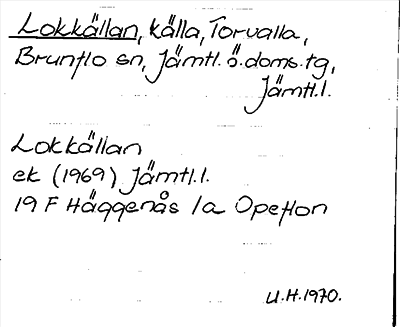 Lokkällan, källa, Torvalla,
Brunflo sn, Jämtl. ö. doms. tg,
Jämtl.l.
Lokkällan
ek (1969) Jämtl.l.
19 F Häggenås 1a Opeflon
U.H. 1970.